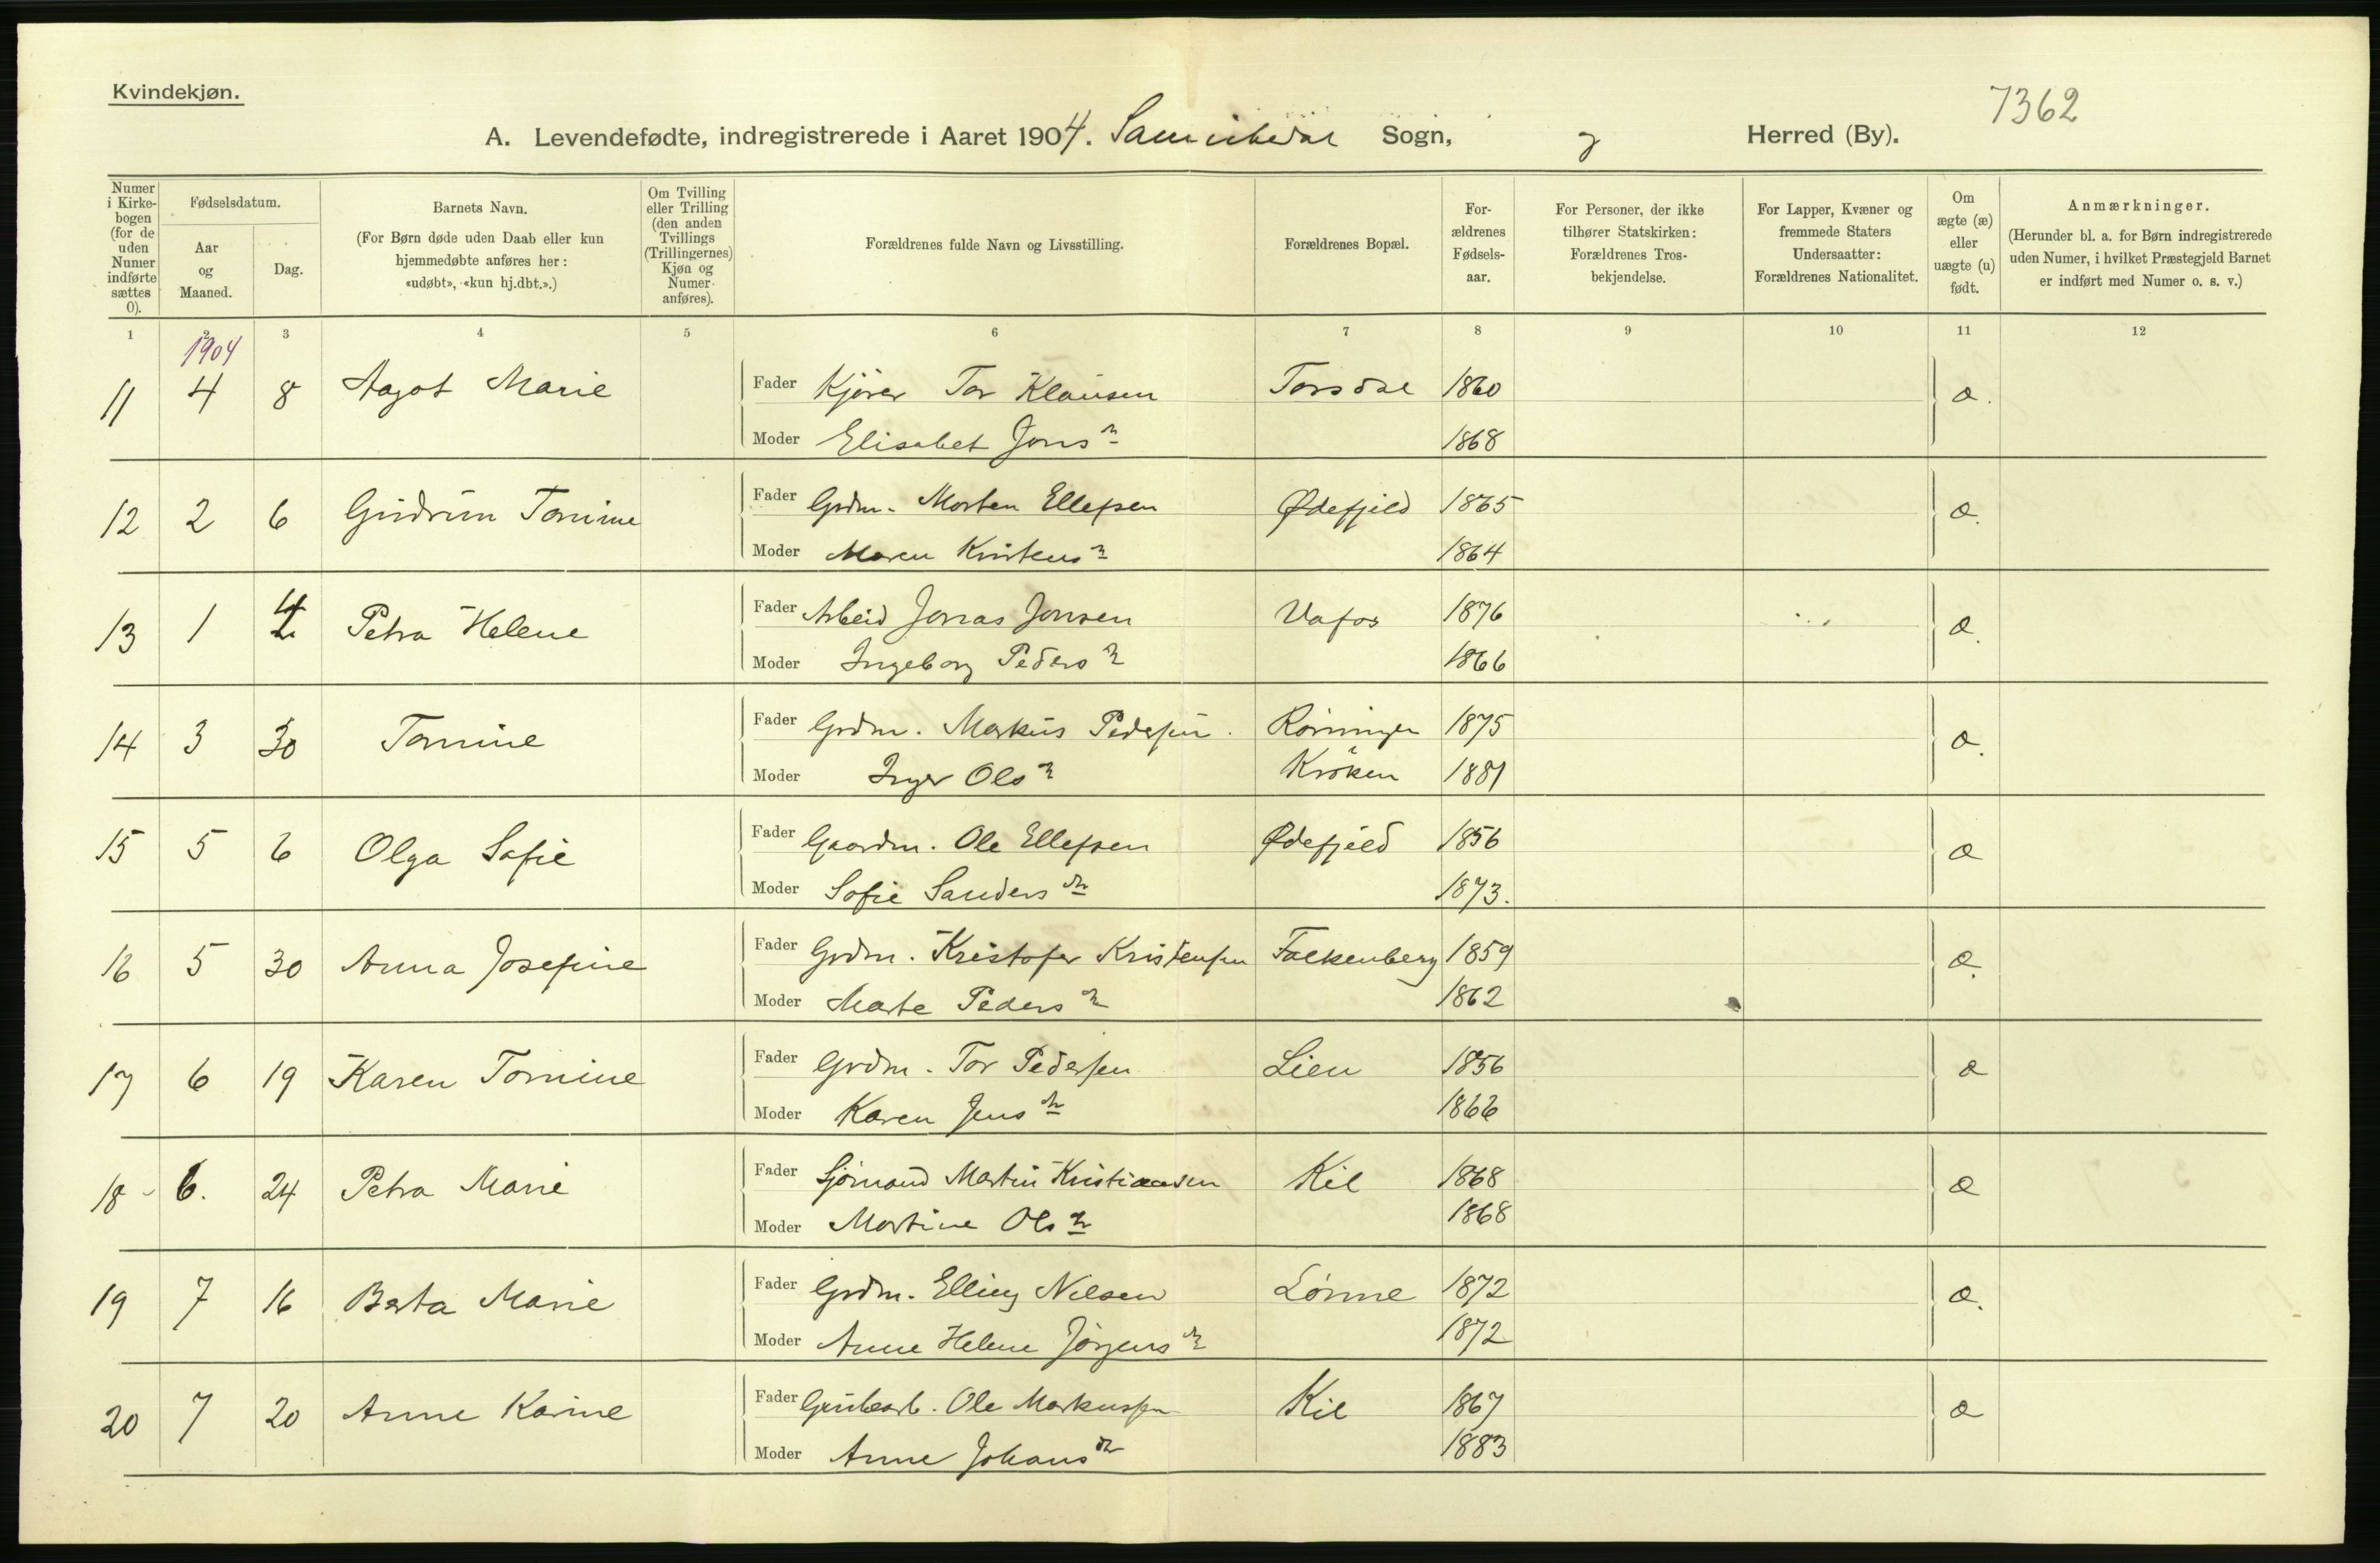 Kvindekjøn.
7362
A. Levendefødte, indregistrerede i Aaret 1904. Sannikedal Sogn, Herred (By).
Numer i Kirkebogen (for de uden Numer indførte sættes 0).
Fødselsdatum.
Aar og Maaned.
Dag.
Barnets Navn.
(For Børn døde uden Daab eller kun hjemmedøbte anføres her: «udøbt», «kun hj.dbt.».)
Om Tvilling eller Trilling (den anden Tvillings (Trillingernes) Kjøn og Numer anføres).
Forældrenes fulde Navn og Livsstilling.
Forældrenes Bopæl.
Forældrenes Fødselsaar.
For Personer, der ikke tilhører Statskirken: Forældrenes Trosbekjendelse.
For Lapper, Kvæner og fremmede Staters Undersaatter: Forældrenes Nationalitet.
Om ægte (æ) eller uægte (u) født.
Anmærkninger.
(Herunder bl. a. for Børn indregistrerede uden Numer, i hvilket Præstegjeld Barnet er indført med Numer o. s. v.)
1 2 3 4 5 6 7 8 9 10 11 12
1904
11 4 8 Aagot Marie Fader Kjører Tor Klausen Torsdal 1860 æ.
Moder Elisabet Jonsdr 1868
12 2 6 Gudrun Tomine Fader Grdm. Morten Ellefsen Ødefjeld 1865 æ.
Moder Maren Kristensdr 1864
13 1 4 Petra Helene Fader Arbeid Jonas Jonsen Vafos 1876 æ.
Moder Ingeborg Pedersdr 1866
14 3 30 Tomine Fader Grdm. Markus Pedersen. Rønningen 1875 æ.
Moder Inger Olsdr Kroken 1881
15 5 6 Olga Sofie Fader Gaardm. Ole Ellefsen Ødefjeld 1856 æ
Moder Sofie Sandersdr 1873.
16 5 30 Anna Josefine Fader Grdm. Kristofer Kristensen Falkenberg 1859 æ.
Moder Marte Pedersdr 1862
17 6 19 Karen Tomine Fader Grdm. Tor Pedersen Lien 1856 æ
Moder Karen Jensdr 1866
18 6. 24 Petra Marie Fader Sjømand Martin Kristiansen Kil 1868 æ
Moder Martine Olsdr 1868
19 7 16 Berta Marie Fader Grdm. Elling Nilsen Lønne 1872 æ.
Moder Anne Helene Jørgensdr 1872
20 7 20 Anne Karine Fader Grubearb. Ole Markussen Kil 1867 æ
Moder Anne Johansdr 1883